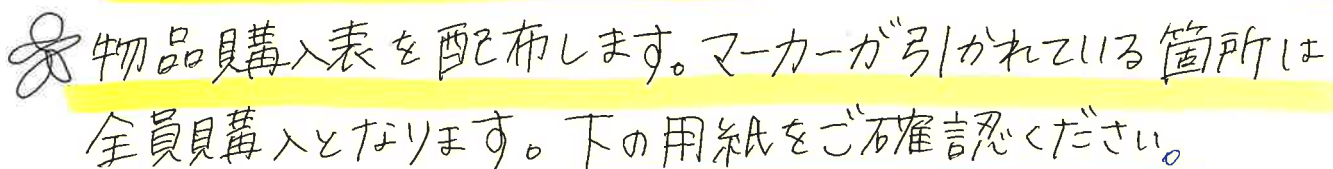 物品購入表を配布します。マーカーが引かれている箇所は
全員購入となります。下の用紙をご確認ください。